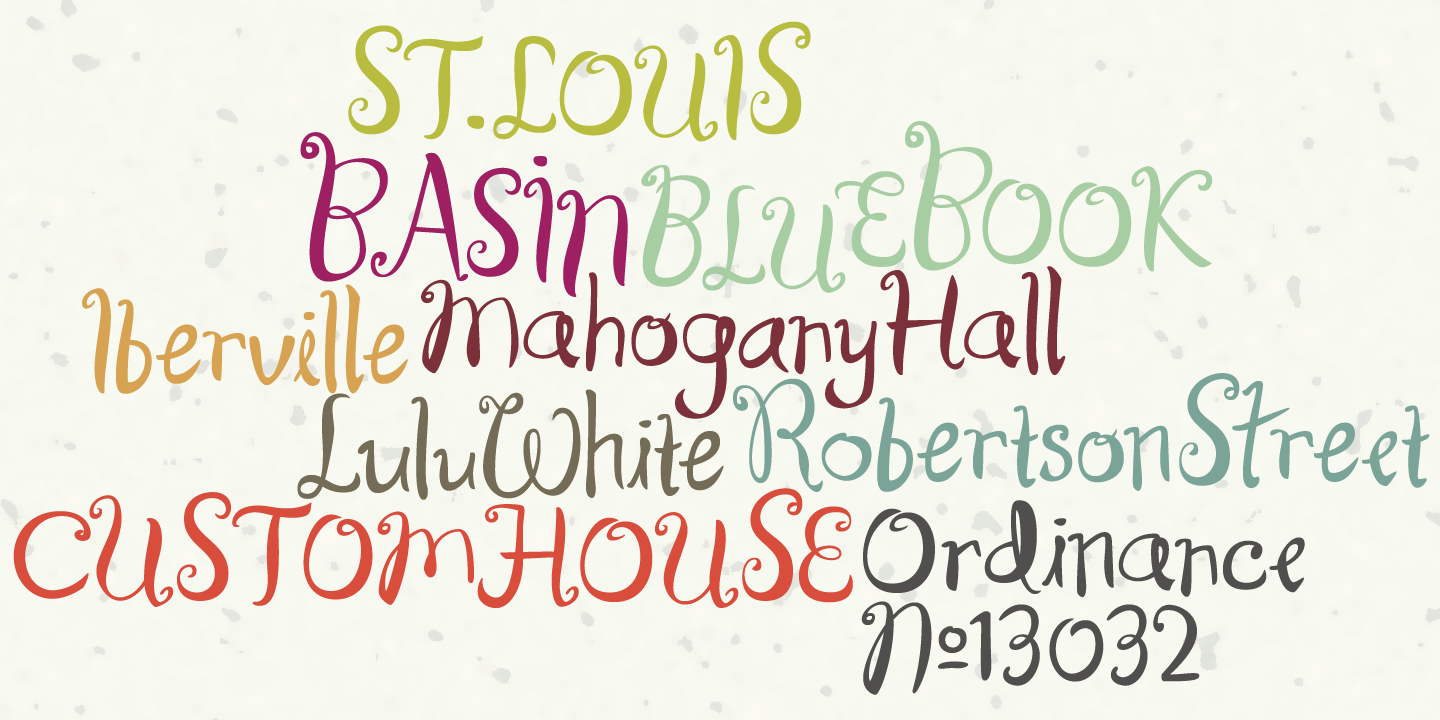 ST.LOUIS
BASin BLUEBOOK
Iberville MahoganyHall
LuluWhite RobertsonStreet
CUSTOMHOUSE Ordinance
Nº13032